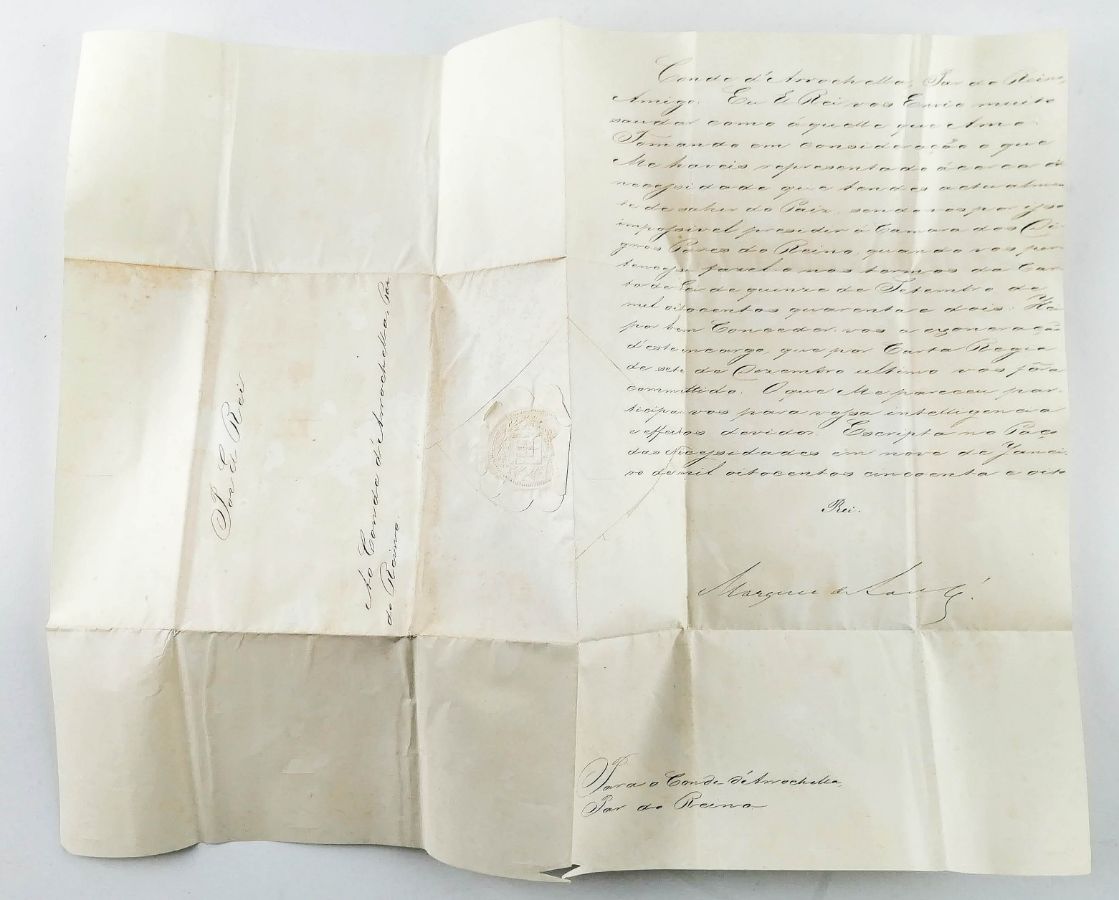 Conde d'Arrochella, Par do Reino,
Amigo. Eu El Rei vos Envio muito
saudar como áquelle que Amo.
Tomando em consideração o que
Me haveis representado ácerca da
necessidade que tendes actualmen-
te de sahir do Paiz, sendo vos por isso
impossivel presidir á Camara dos Di-
gnos Pares do Reino, quando vos per-
tencesse fazel-o nos termos da Car-
ta de Lei de quinze de Setembro de
mil oitocentos quarenta e dois: Hei
por bem Conceder-vos a exoneração
d'este encargo, que por Carta Regia
de sete de Dezembro ultimo vos fôra
committido. O que Me pareceu par-
ticipar-vos para vossa intelligencia
e effeitos devidos. Escripta no Paço
das Necessidades em nove de Janei-
ro de mil oitocentos cincoenta e oito
Rei.
Marquez de Loulé.
Para o Conde d'Arrochella,
Par do Reino
Por El Rei
Ao Conde d'Arrochella, Par
do Reino.